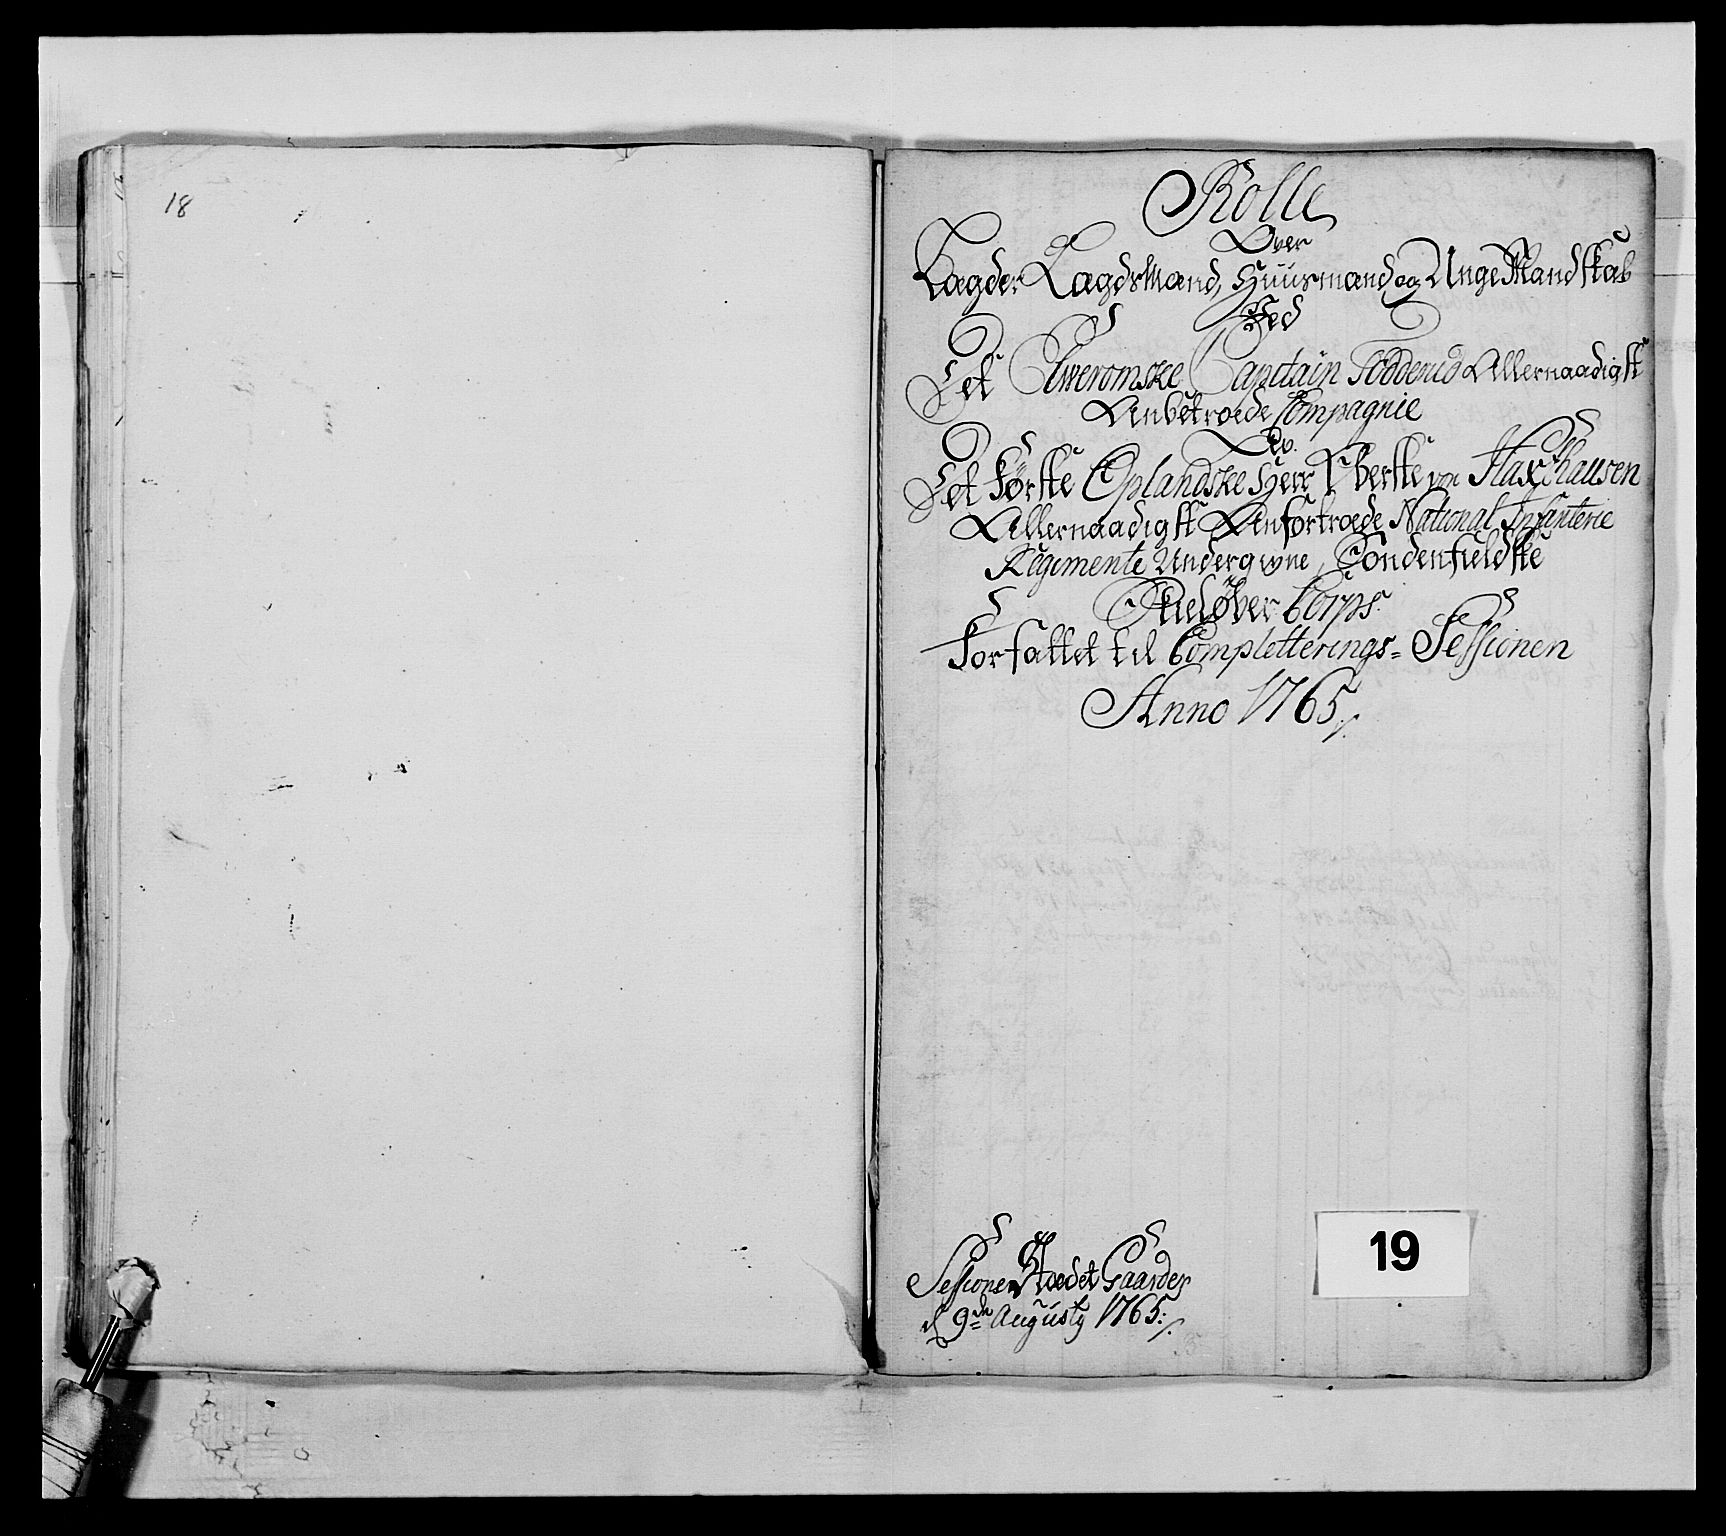 18
Rolle
Over
Lægder Lægdsmænd, Huusmænd og Unge Mandskab
Ved
Det Elweromske Capitain Fødderud Allernaadigst
Anbetroede Compagnie
Av
Det Første Oplandske Herr Oberste von Haxthausen
Allernaadigst Anfortroede National Infanterie
Regimente Undergivne, Søndenfieldske
Skieløber Corps.
Forfattet til Completterings= Sessionen
Anno 1765./.
Sessionen Stædet Gaarder
d 9de Augusty 1765:/.
19